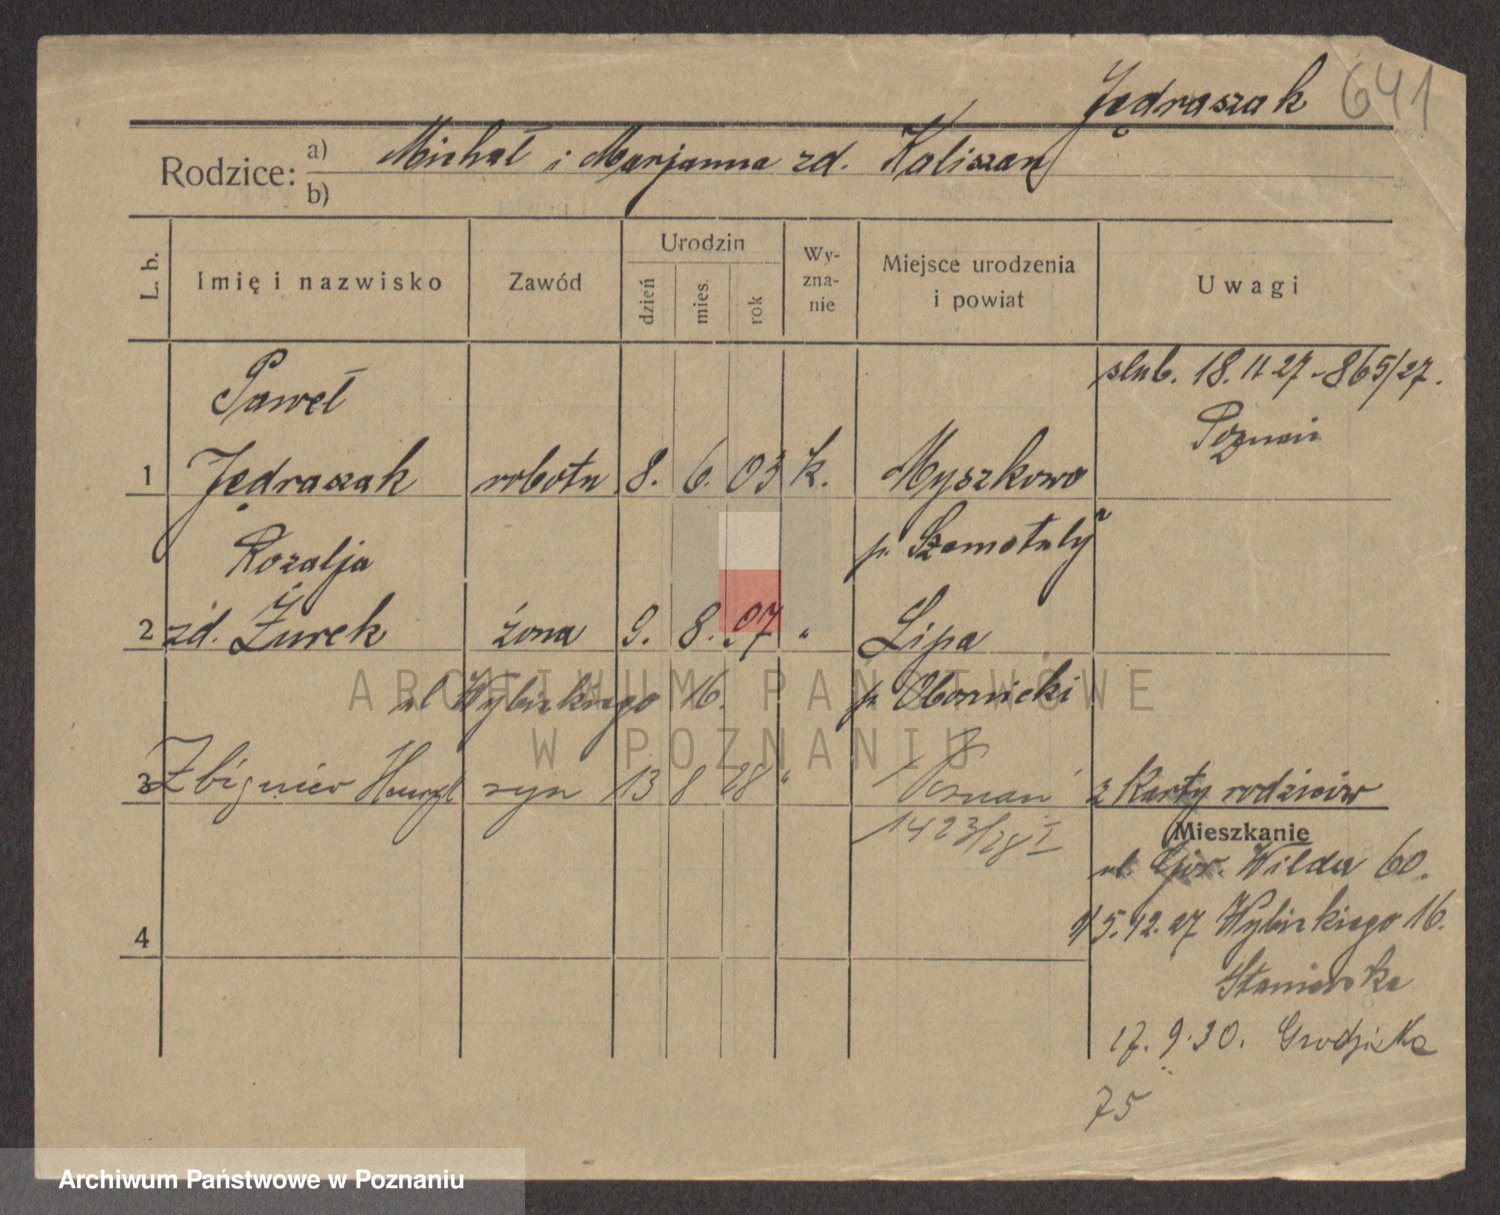 Jędraszak 641
Rodzice: a) Michał i Marjanna zd. Kaliszan
b)
L. b. Imię i nazwisko Zawód Urodzin dzień mies. rok Wy-zna-nie Miejsce urodzenia i powiat Uwagi
Paweł ślub. 18. 11 27 - 865/27.
Poznań
1 Jędraszak robotn 8. 6. 03 k. Myszkowo
Rozalja p. Szamotuły
2 zd. Żurek żona 9. 8. 07 " Lipa
ul Wybickiego 16. p. Obornicki
3 Zbigniew Henryk syn 13 8 28 " Poznań z Karty rodziców
1423/28 I
Mieszkanie
ul. Gór. Wilda 60.
15.12.27 Wybickiego 16.
4
17. 9. 30. Grodziska
75
ARCHIWUM PAŃSTWOWE
W POZNANIU
Archiwum Państwowe w Poznaniu